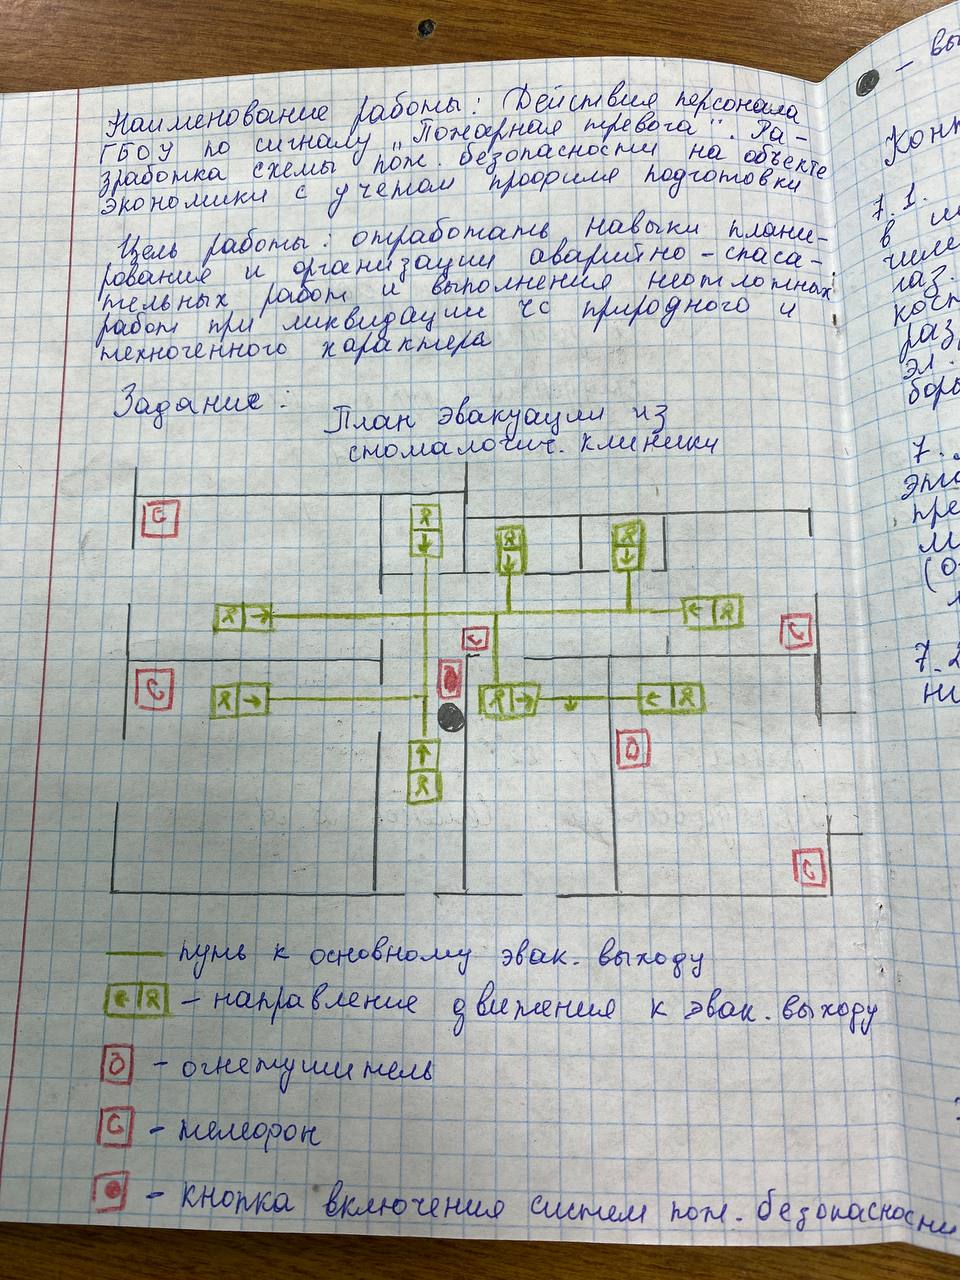 Наименование работы: Действия персонала
ГБОУ по сигналу „Пожарная тревога". Ра-
зработка схемы пож. безопасности на объекте
экономики с учетом профиля подготовки
Цель работы: отработать навыки плани-
рования и организации аварийно-спаса-
тельных работ и выполнения неотложных
работ при ликвидации ЧС природного и
техногенного характера
Задание:
План эвакуации из
стоматологич. клиники
— путь к основному эвак. выходу
- направление движения к эвак. выходу
- огнетушитель
- телефон
- кнопка включения систем пож. безопасности
- вы
Конт
7.1.
в
числе
газ.
кост
раз
эл.
борь
7.
Это
пре
м
(о
7.2
ни